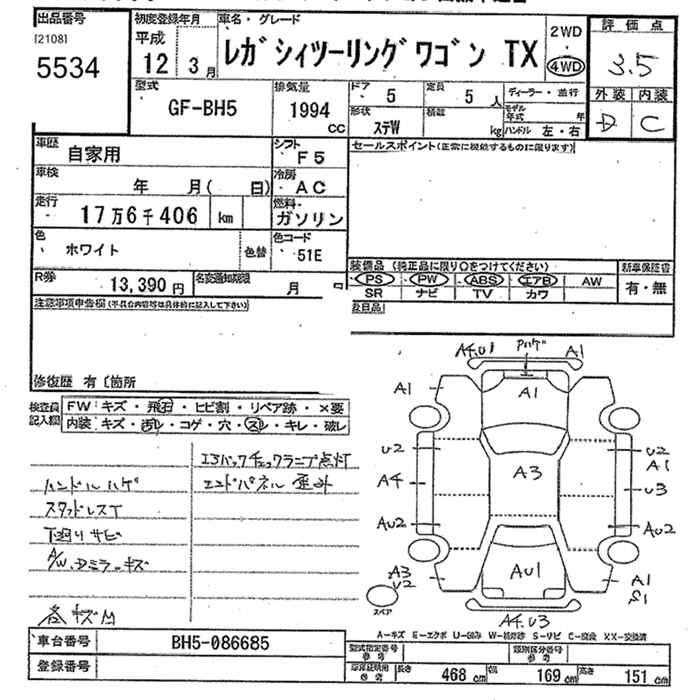 出品番号
[2108]
5534
初度登録年月
平成
12 3月
車名・グレード
レガシィツーリングワゴン TX
2WD
4WD
評価点
3.5
外装 内装
D C
型式
GF-BH5
排気量
1994
CC
ドア
5
定員
5 人
ディーラー・並行
形状
ステW
積載
kg
モデル年式 年
ハンドル 左・右
車歴
自家用
シフト
F5
セールスポイント(正常に機能するものに限ります)
車検
年 月( 日)
冷房
AC
走行
17万6千406 km
燃料
ガソリン
色
ホワイト
色替
色コード
51E
R券
13,390円
名変通知期限
月
装備品 (純正品に限り○をつけてください)
PS PW ABS エアB AW
SR ナビ TV カワ
新車保証書
有・無
注意事項申告欄(不具合内容等は具体的に記入して下さい)
修復歴 有〔箇所
検査員記入欄
FW: キズ・飛石・ヒビ割・リペア跡・×要
内装: キズ・汚レ・コゲ・穴・スレ・キレ・破レ
エアバックチェックランプ点灯
ハンドルハゲ
エンドパネル歪み
スタッドレスT
下廻りサビ
A/W、Dミラーキズ
各キズ
A4.U1
A1
A1
A1
U2
A4
AU2
A3
U2
A1
U3
AU2
A3
U2
AU1
A1
S1
スペア
A4.U3
A-キズ E-エクボ U-凹み W-補修跡 S-サビ C-腐食 XX-交換済
車台番号
BH5-086685
登録番号
型式指定番号
参考
類別区分番号
参考
参考
長さ 468 cm
幅 169 cm
高さ 151 cm